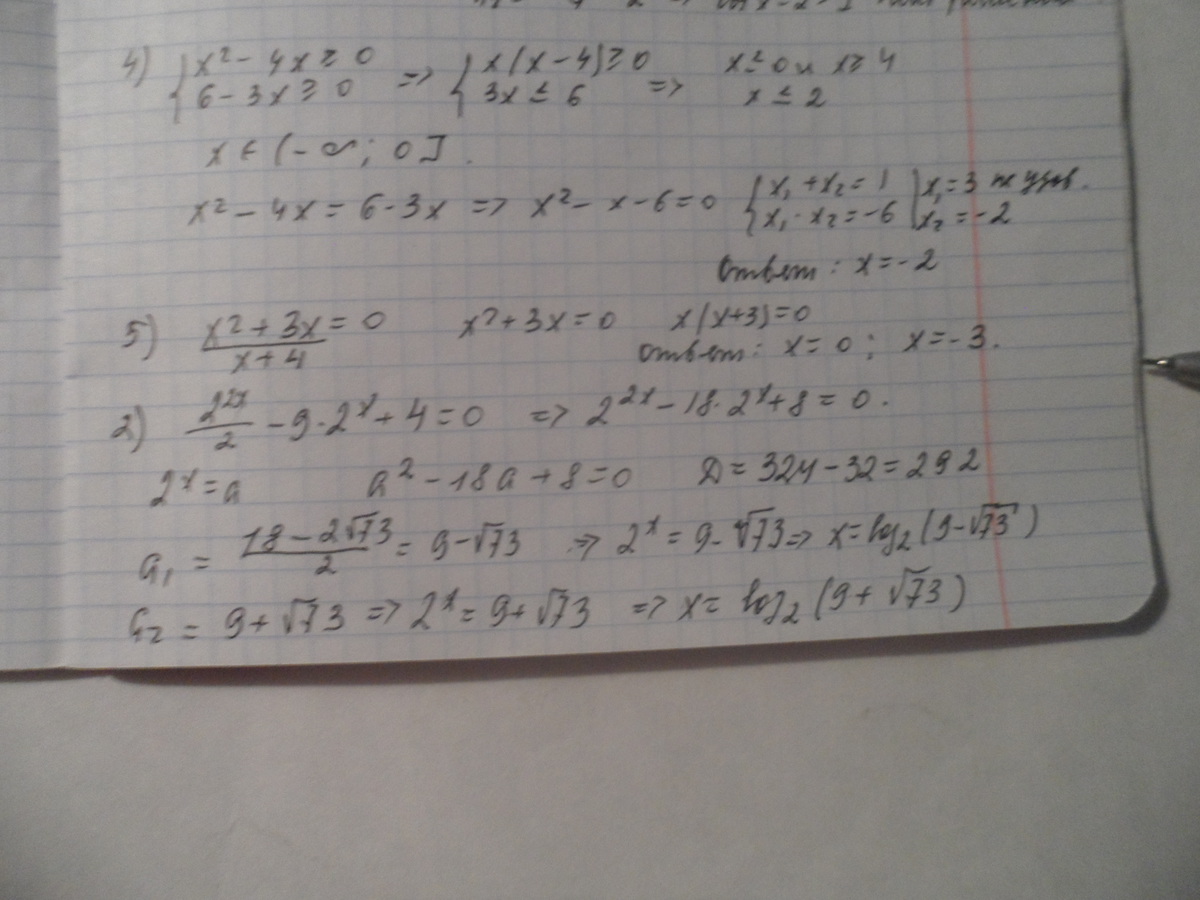 4) { x² - 4x ≥ 0 => { x(x-4) ≥ 0 => x ≤ 0 и x ≥ 4
6 - 3x ≥ 0 3x ≤ 6 x ≤ 2
x ∈ (-∞; 0].
x² - 4x = 6 - 3x => x² - x - 6 = 0 { x₁ + x₂ = 1 | x₁ = 3 не удов.
x₁ · x₂ = -6 | x₂ = -2
Ответ: x = -2
5) (x² + 3x)/(x + 4) = 0 x² + 3x = 0 x(x+3) = 0
Ответ: x = 0; x = -3.
2) 2^(2x)/2 - 9 · 2^x + 4 = 0 => 2^(2x) - 18 · 2^x + 8 = 0.
2^x = a a² - 18a + 8 = 0 D = 324 - 32 = 292
a₁ = (18 - 2√73)/2 = 9 - √73 => 2^x = 9 - √73 => x = log₂(9 - √73)
a₂ = 9 + √73 => 2^x = 9 + √73 => x = log₂(9 + √73)